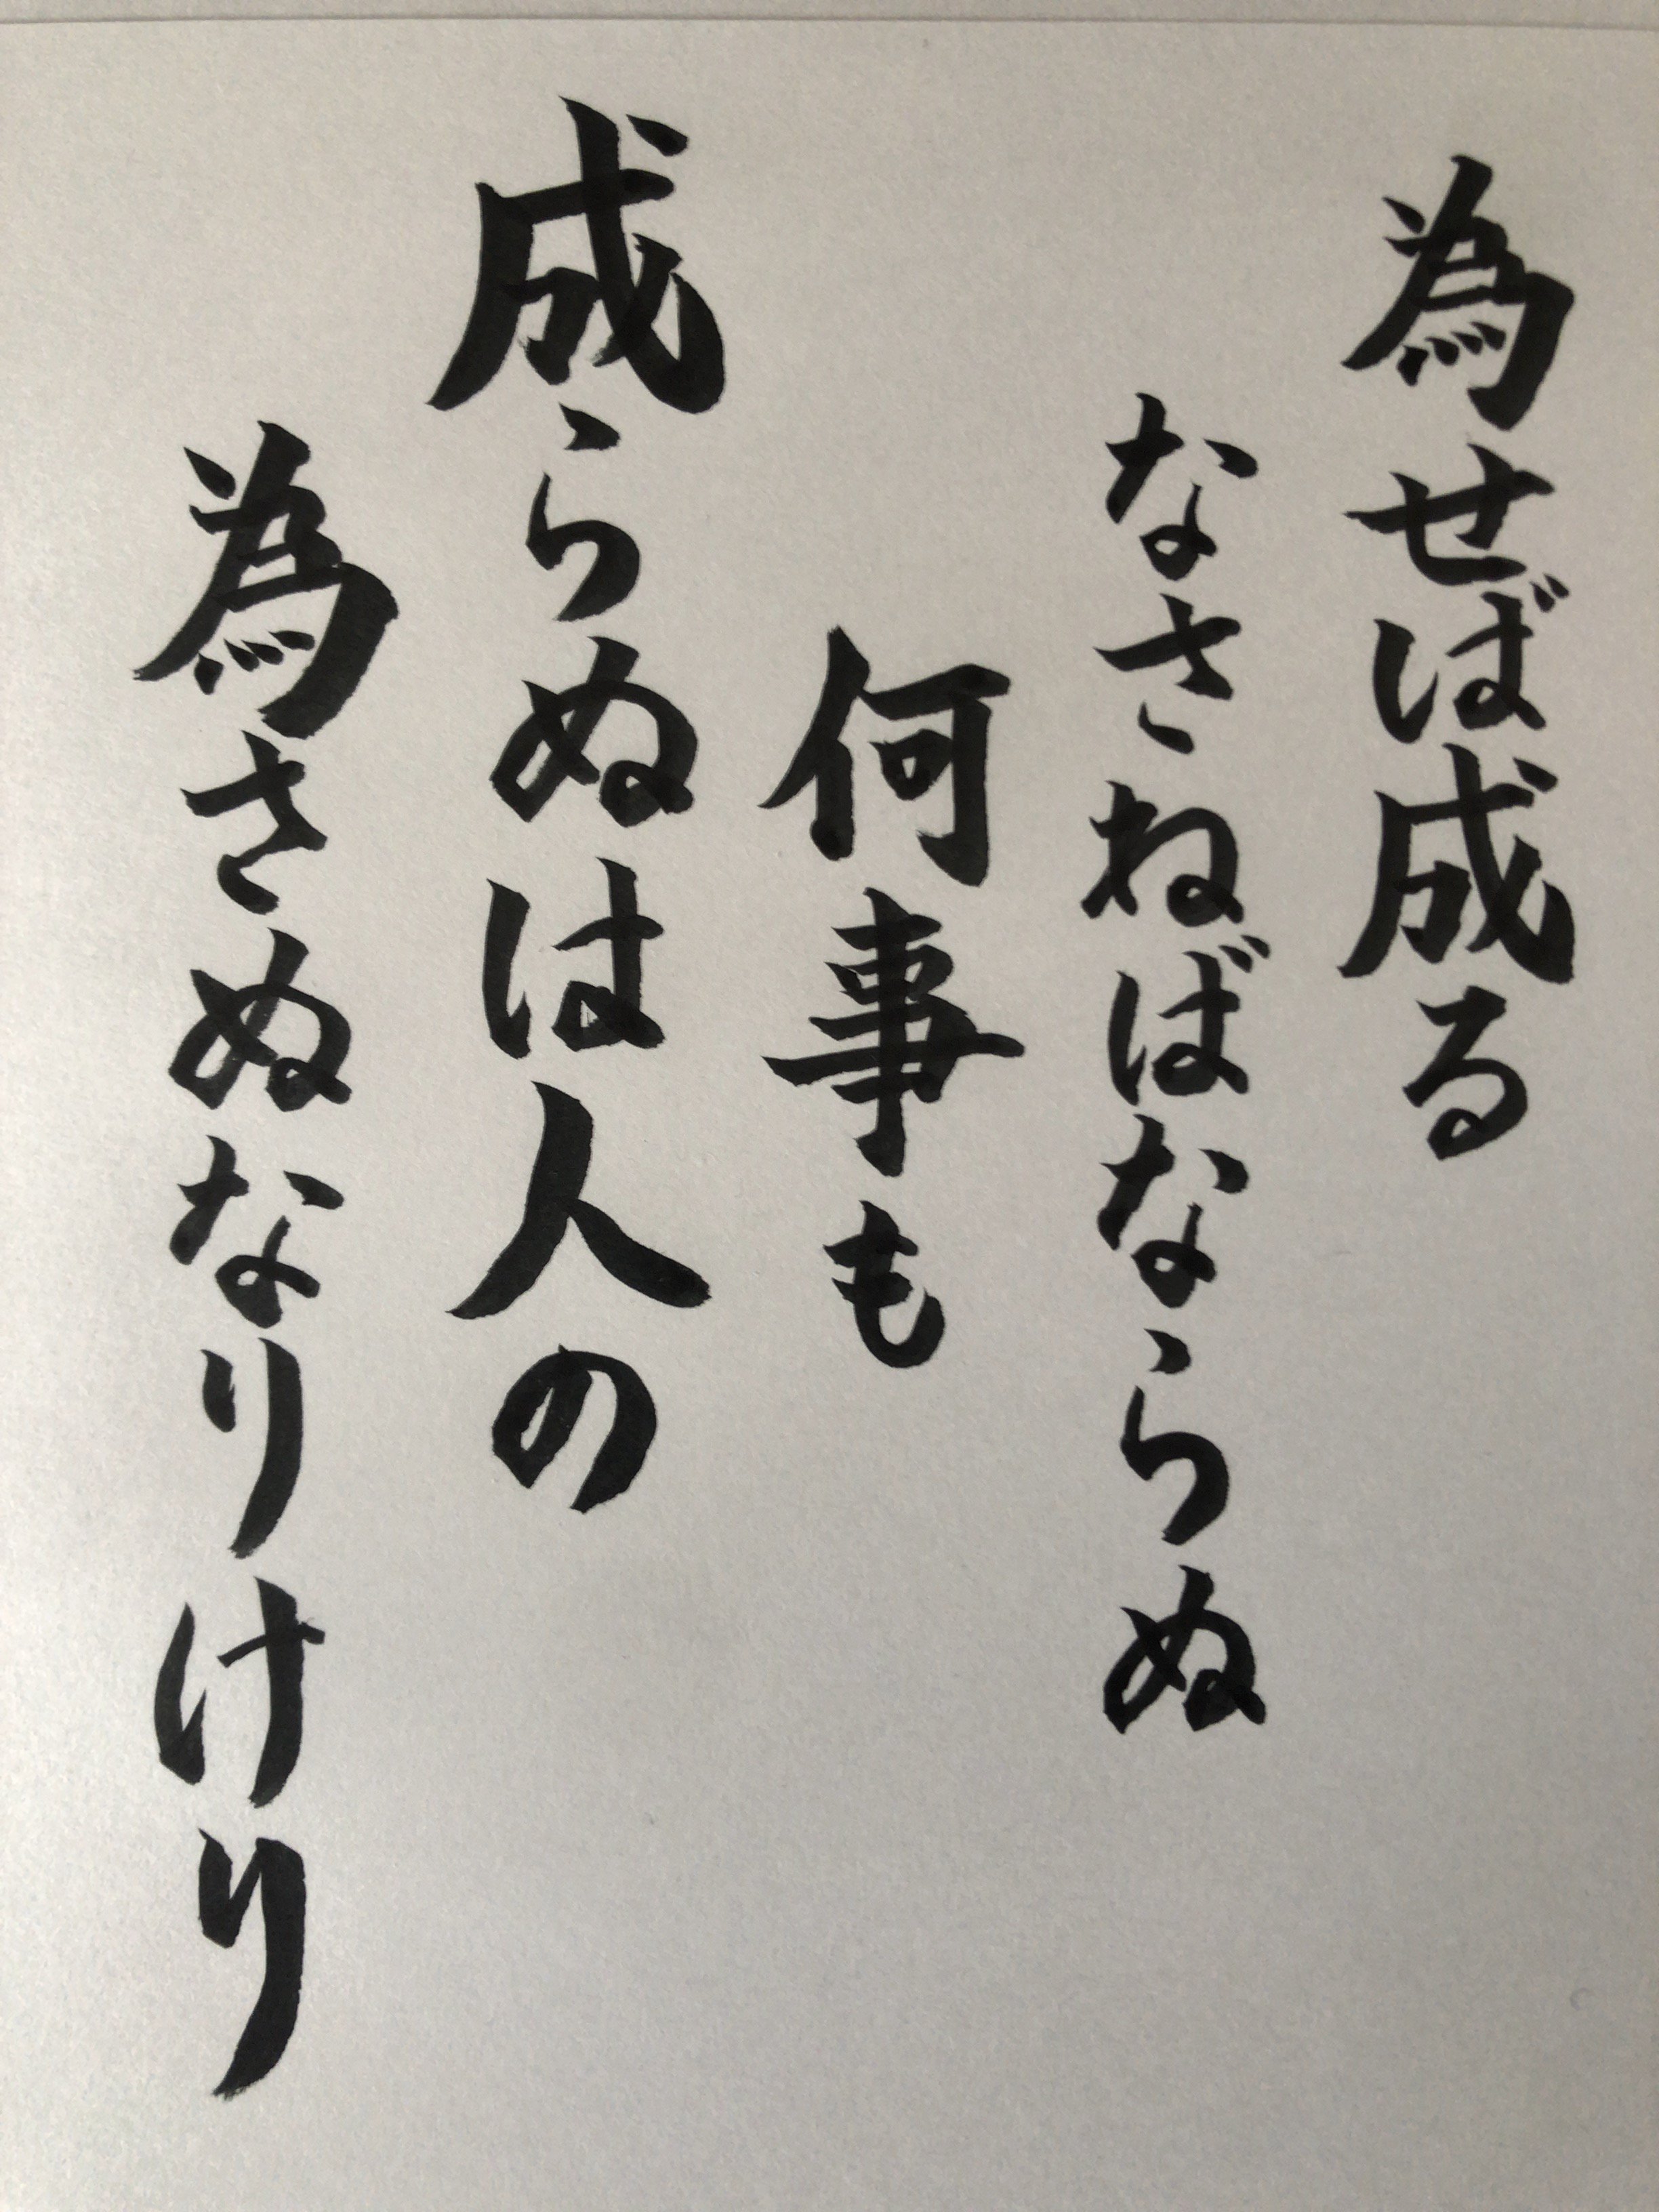 為せば成る
なさねばならぬ
何事も
成らぬは人の
為さぬなりけり